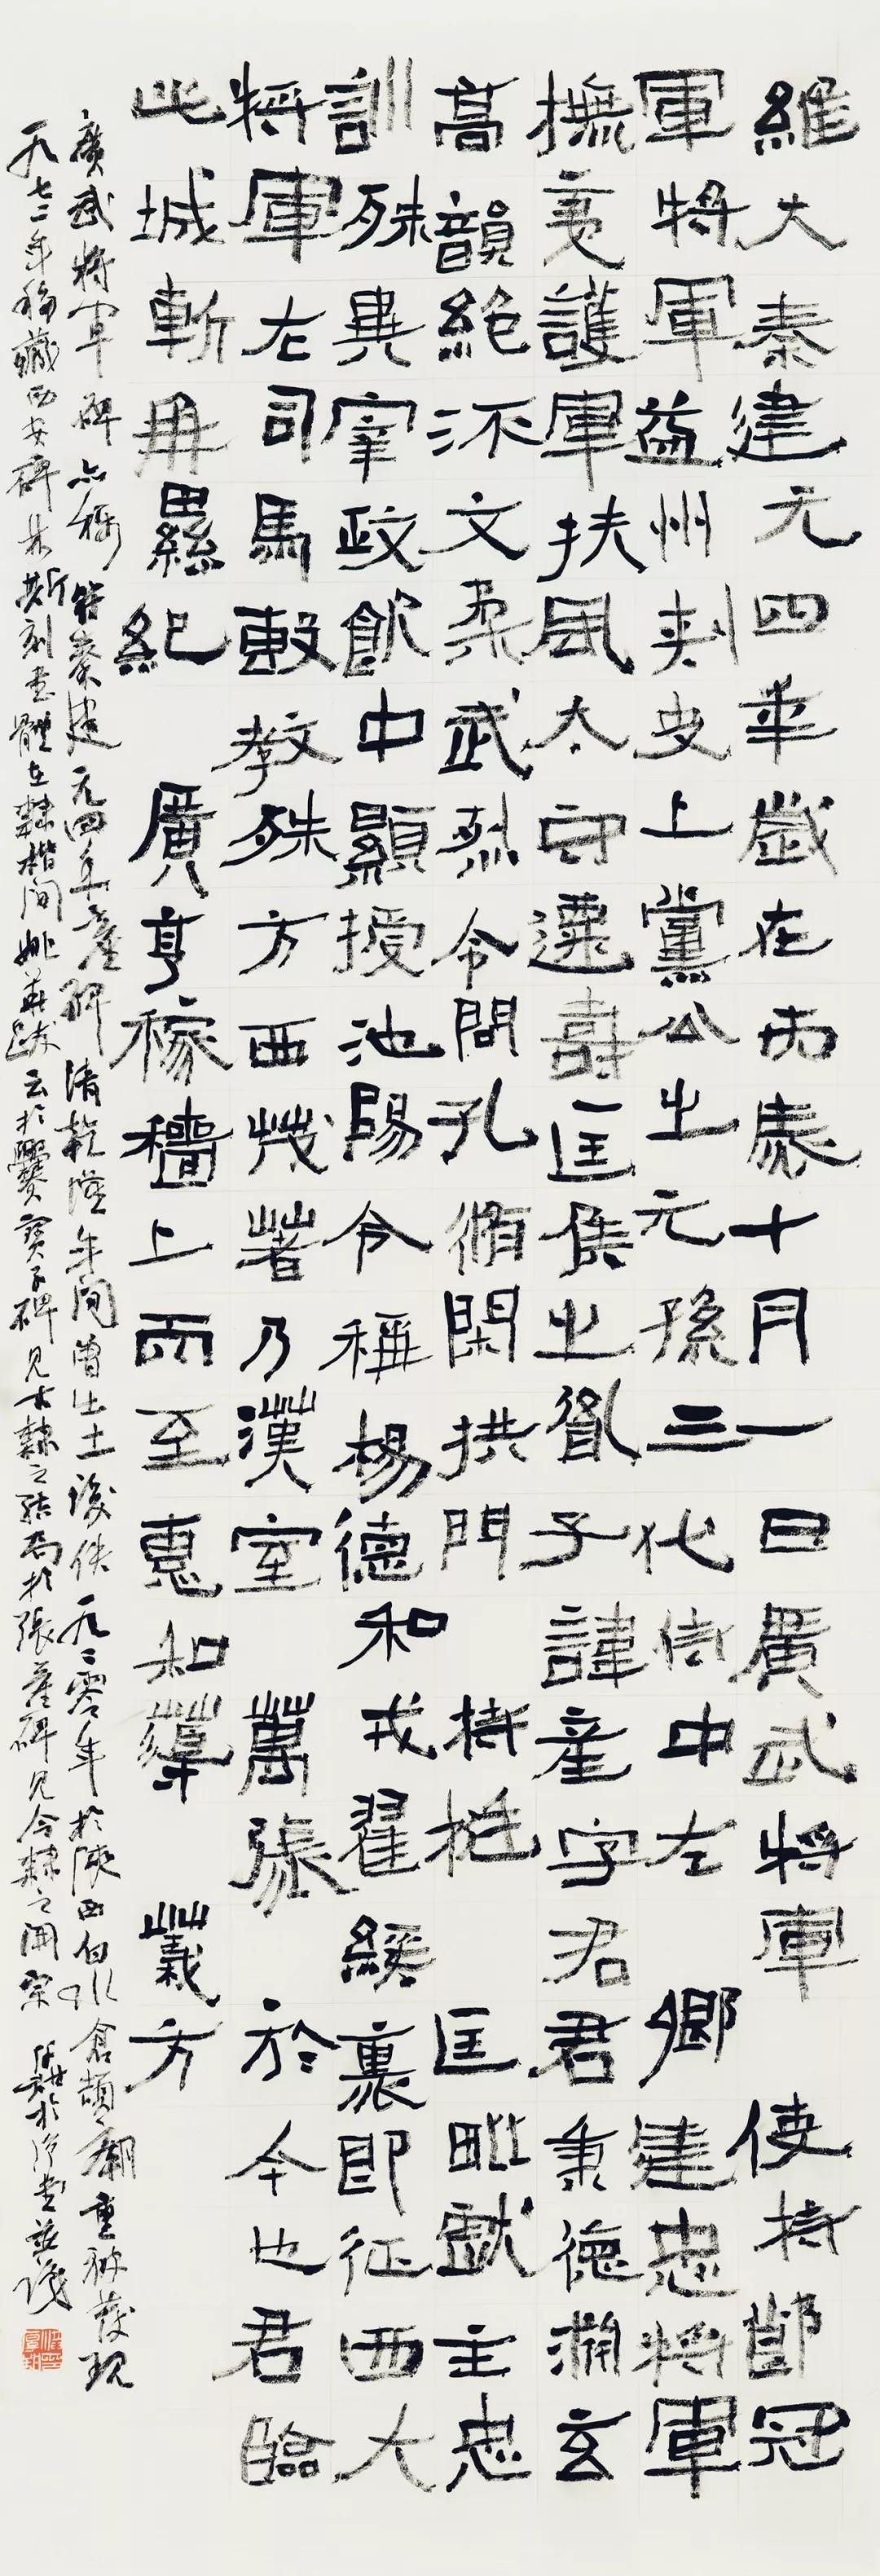 維大秦建元四年歲在丙辰十月一日廣武將軍 使持節冠
軍將軍益州刺史上黨公之元孫三代侍中左 卿建忠將軍
撫夷護軍扶風太守遷壽匡侯之胤子諱産字君君秉德淵玄
高韻絶 文柔武烈令問孔脩閑拱門 持挺 匡毗猷主忠
訓殊異宰政飲中顯授池陽令稱楊德和戎翟綏裏即征西大
將軍左司馬敷教殊方西戎著乃漢室 萬張 於今也君臨
此城漸再累紀 廣亨稼穡上而至惠和 羲方
廣武將軍碑亦稱前秦建元四年產碑清乾隆年間曾出土後佚一九二零年於陝西白水倉頡廟重被發現
一九七二年移藏西安碑林斯刻書體在隸楷間姚華跋云於爨寶子碑見古隸之結局於張產碑見今隸之開宗